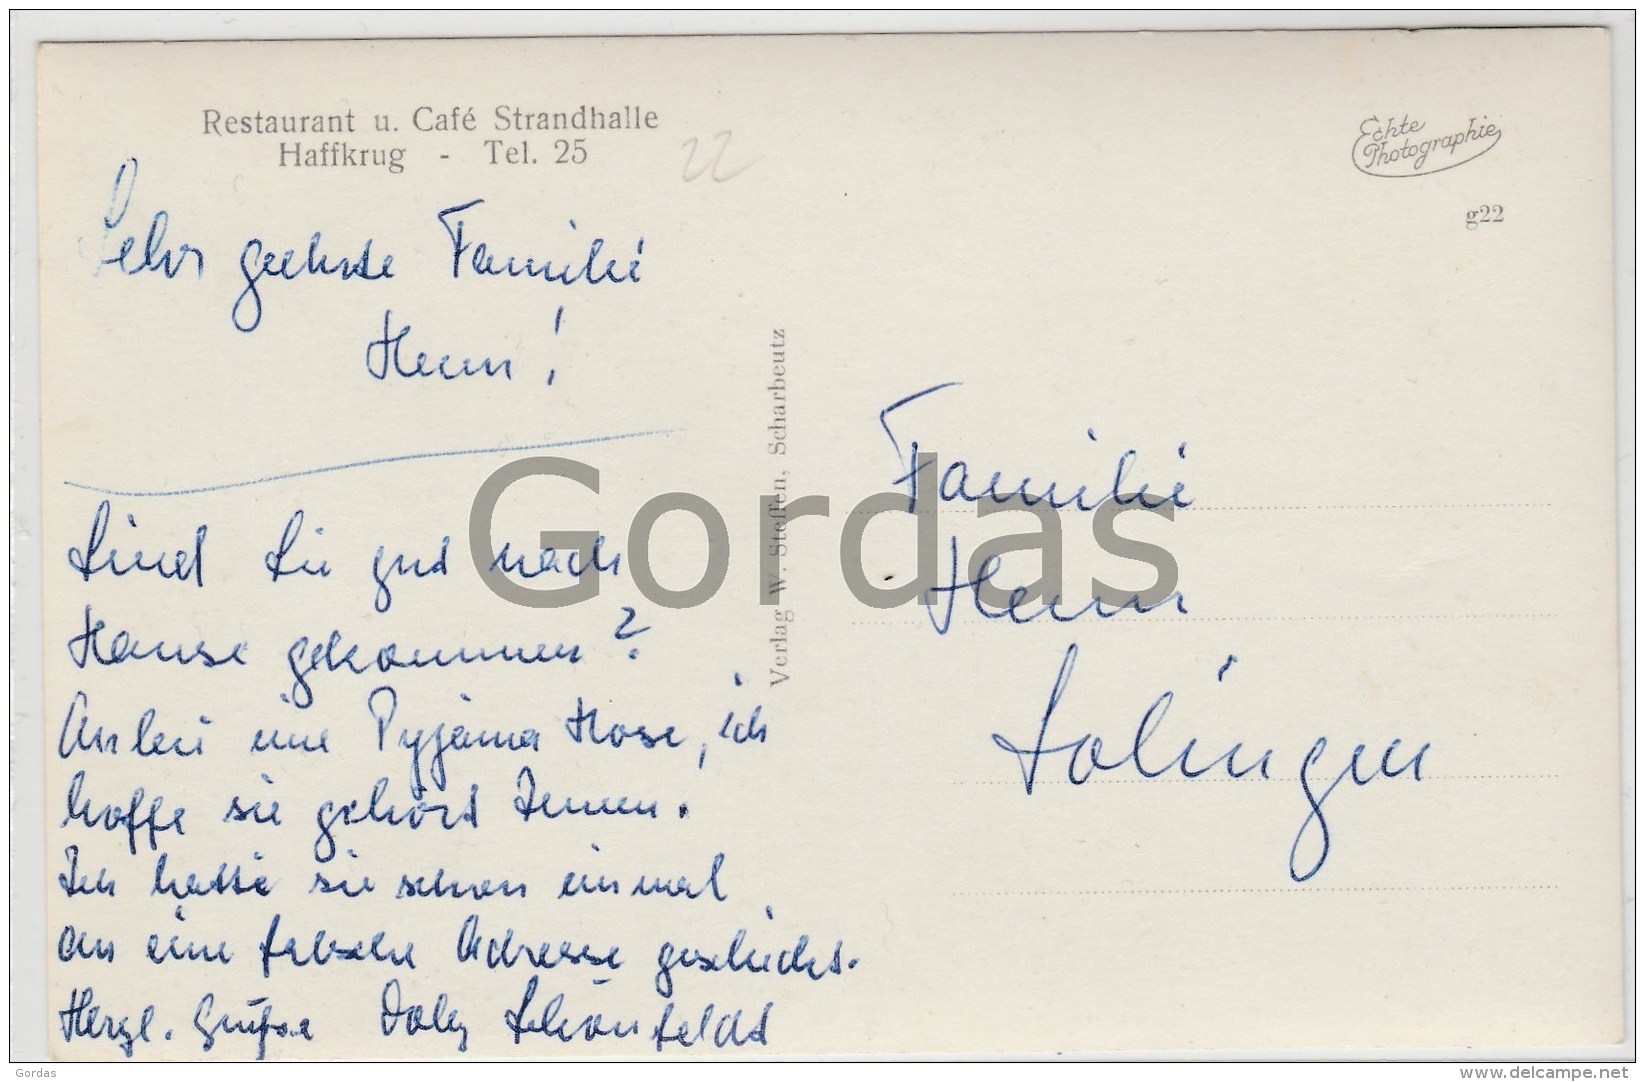 Restaurant u. Café Strandhalle
Haffkrug - Tel. 25
22
Echte
Photographie
g22
Sehr geehrte Familie
Henn!
Sind Sie gut nach
Hause gekommen?
Anbei eine Pyjama Hose, ich
hoffe sie gehört Ihnen.
Ich hatte sie schon einmal
an eine falsche Adresse geschickt.
Herzl. Grüße Dolly Schönfeldt
Verlag W. Steffen, Scharbeutz
Familie
Henn
Solingen
Gordas
Gordas
www.delcampe.net